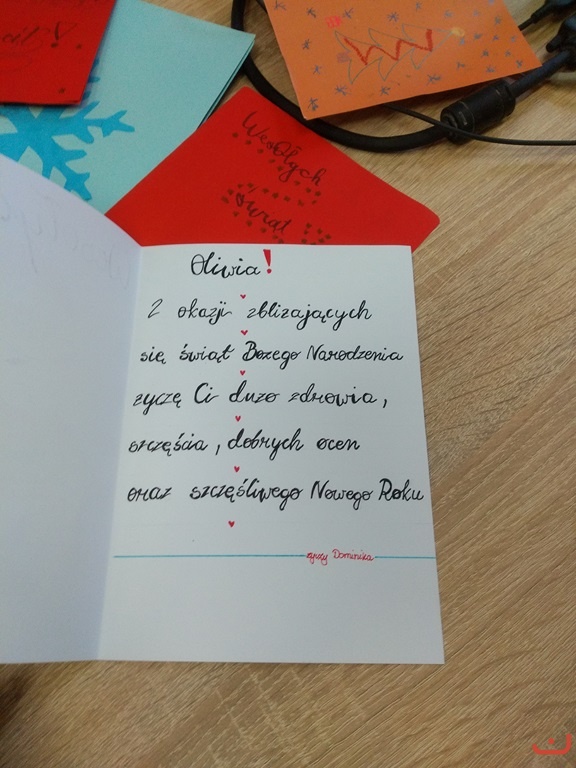 Wesołych
Świąt
Oliwia!
Z okazji zbliżających
się świąt Bożego Narodzenia
życzę Ci dużo zdrowia,
szczęścia, dobrych ocen
oraz szczęśliwego Nowego Roku
życzy Dominika